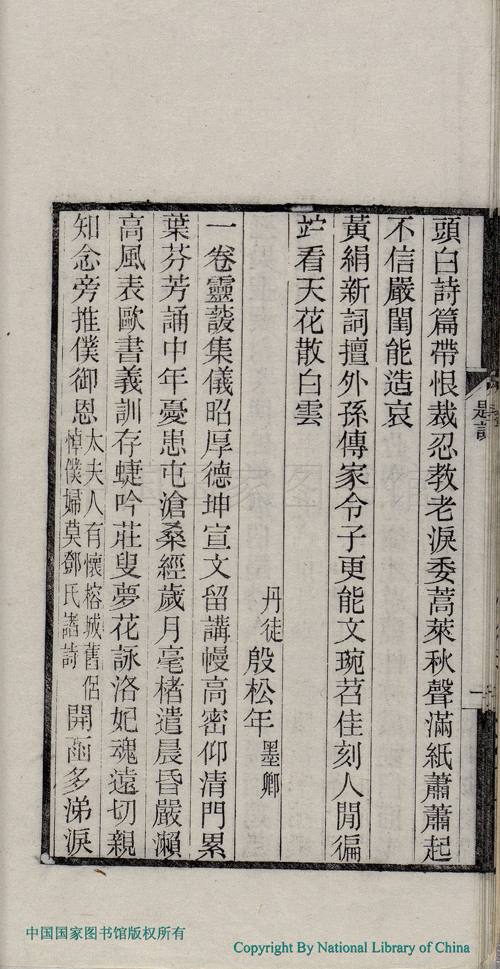 頭白詩篇帶恨裁忍教老淚委蒿萊秋聲滿紙蕭蕭起
不信嚴閨能造哀
黃絹新詞擅外孫傳家令子更能文琬苕佳刻人閒徧
竚看天花散白雲
丹徒 殷松年 墨卿
一卷靈薐集儀昭厚德坤宣文留講幔高密仰清門累
葉芬芳誦中年憂患屯滄桑經歲月毫楮遣晨昏嚴瀨
高風表歐書義訓存蜨吟莊叟夢花詠洛妃魂遠切親
知念旁推僕御恩太夫人有懷榕城舊侶
悼僕婦莫鄧氏諸詩開函多涕淚
題詞
一
中国国家图书馆版权所有
Copyright By National Library of China